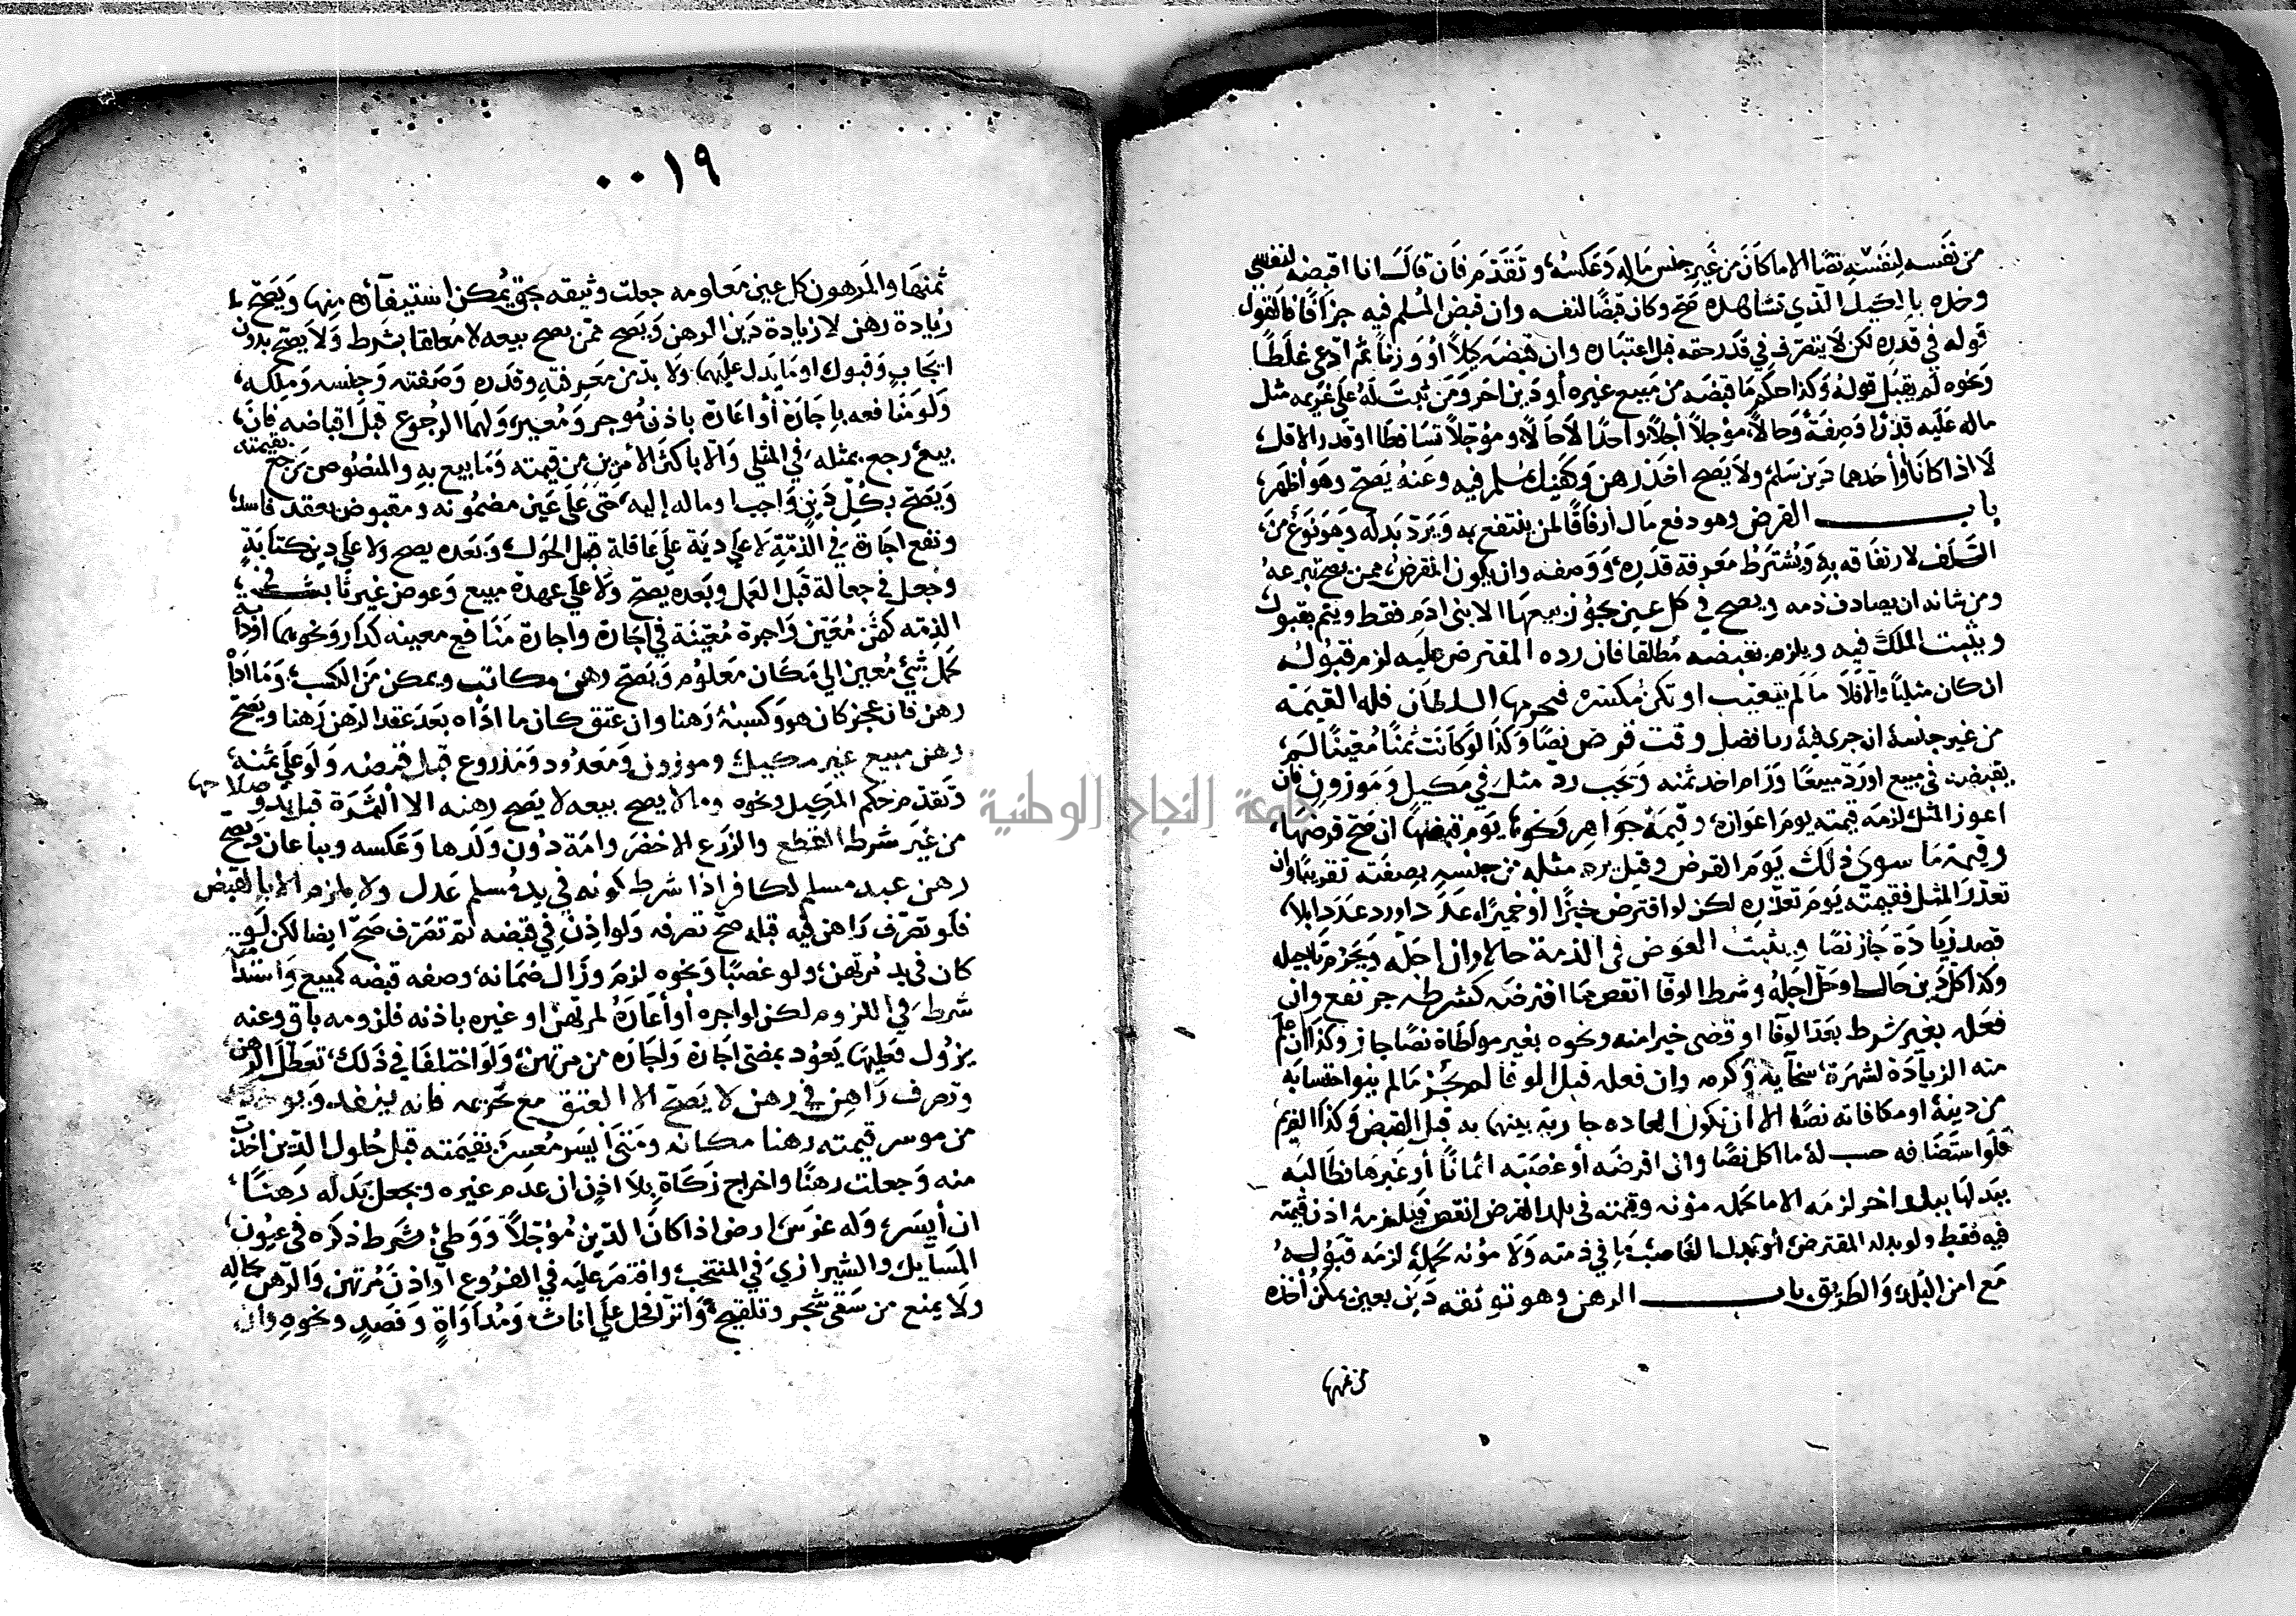 من نفسه لنفسه نصا الا ما كان من غير جنس ماله وعكسه وتقدم فان قال انا اقبضه لنفسي
وخذه بالكيل الذي تشاهده صح وكان قبضا لنفسه وان قبض المسلم فيه جزافا فالقول
قوله في قدره لكن لا يتصرف في قدر حقه قبل اعتباره وان قبضه كيلا او وزنا ثم ادعى غلطا
ونحوه لم يقبل قوله وكذا حكم ما قبضه من مبيع غيره أو دين اخر ومن ثبت له على غريمه مثل
ماله عليه قدرا وصفة وحالا ومؤجلا أجلا واحدا لا حالا ومؤجلا تساقطا او قدر الاقل
لا اذا كانا أو أحدهما دين سلم ولا يصح اخذ رهن وكفيل بمسلم فيه وعنه يصح وهو أظهر
باب القرض وهو دفع مال ارفاقا لمن ينتفع به ويرد بدله وهو نوع من
السلف لارتفاقه به ويشترط معرفة قدره ووصفه وان يكون المقرض ممن يصح تبرعه
ومن شانه ان يصادف ذمه ويصح في كل عين يجوز بيعها الا بني ادم فقط ويتم بقبول
ويثبت الملك فيه ويلزم بقبضه مطلقا فان رده المقترض عليه لزم قبوله
ان كان مثليا والا فلا ما لم يتعيب او تكن مكسرة فيحرمها السلطان فله القيمة
من غير جنسه ان جرى فيه ربا فضل وقت قرض نصا وكذا لو كانت ثمنا معينا لم
يقبضه في مبيع او رد مبيعا ورام اخذ ثمنه وتجب رد مثل في مكيل وموزون فان
اعوز المثل لزمه قيمته يوم اعوازه وقيمة جواهر ونحوها يوم قبضها ان صح قرضها
وقيمة ما سوى ذلك يوم القرض وقيل يرد مثله من جنسه بصفته تقريبا وان
تعذر المثل فقيمته يوم تعذره لكن لو اقترض خبزا أو خميرا عددا ورد عددا بلا
قصد زيادة جاز نصا ويثبت العوض في الذمة حالا وان اجله ويحرم تأجيله
وكذا كل دين حال او حل اجله وشرط الوفا انقص مما اقترضه كشرطه جر نفع وان
فعله بغير شرط بعد الوفا او قضى خيرا منه ونحوه بغير مواطاة نصا جاز وكذا ان علم
منه الزيادة لشهرة سخائه وكرمه وان فعله قبل الوفا لم يجز ما لم ينو احتسابه
من دينه او مكافاته نصا الا ان تكون العاده جارية بينهما به قبل القرض وكذا الغريم
فلو استضافه حسب له ما اكل نصا وان اقرضه أو غصبه اثمانا أو غيرها فطالبه
ببدلها ببلد اخر لزمه الا ما لحمله مؤنه وقيمته في بلد القرض انقص فيلزمه اذن قيمته
فيه فقط ولو بدله المقترض أو بدل الغاصب ما في ذمته ولا مؤنه لحمله لزمه قبوله
مع امن البلد والطريق باب الرهن وهو توثقه دين بعين يمكن أخذه
من ثمنها
٠٠١٩
ثمنها والمرهون كل عين معلومه جعلت وثيقه بحق يمكن استيفاؤه منها ويصح
زيادة رهن لا زيادة دين الرهن ويصح ممن يصح بيعه لا معلقا بشرط ولا يصح بدون
ايجاب وقبول او ما يدل عليهما ولا بد من معرفته وقدره وصفته وجنسه وملكه
ولو منافعه باجارة أو اعارة باذن موجر ومعير ولهما الرجوع قبل اقباضه فان
بيع رجع بمثله في المثلي والا باكثر الامرين من قيمته وما بيع به والمنصوص يرجع بقيمته
ويصح بكل دين واجب او ماله إليه حتى على عين مضمونه ومقبوض بعقد فاسد
ونفع اجارة في الذمة لا على دية على عاقلة قبل الحول وبعده يصح ولا على دين كتابة
وجعل في جعالة قبل العمل وبعده يصح ولا على عهدة مبيع وعوض غير ثابت في
الذمه كثمن معين واجرة معينة في اجارة واجارة منافع معينه كدار ونحوها او دابه
لحمل شيء معين الى مكان معلوم ويصح رهن مكاتب ويمكن من الكسب وما اداه
رهن فان عجز كان هو وكسبه رهنا وان عتق كان ما اداه بعد عقد الرهن رهنا ويصح
رهن مبيع غير مكيل وموزون ومعدود ومذروع قبل قبضه ولو على ثمنه
وتقدم حكم المكيل ونحوه وما لا يصح بيعه لا يصح رهنه الا الثمرة قبل بدو صلاحها
من غير شرط القطع والزرع الاخضر وامة دون ولدها وعكسه ويباعان ويصح
رهن عبد مسلم لكافر اذا شرط كونه في يد مسلم عدل ولا يلزم الا بالقبض
فلو تصرف راهن فيه قبله صح تصرفه ولو اذن في قبضه ثم تصرف صح ايضا لكن لو
كان في يد مرتهن ولو غصبا ونحوه لزم وزال ضمانه وصفه قبضه كمبيع واستدامته
شرط في اللزوم لكن لو اجره أو أعاره لمرتهن او غيره باذنه فلزومه باق وعنه
يزول فعليها يعود بمضي اجارة ولجاره من مرتهن ولو اختلفا في ذلك تعطل الرهن
وتصرف راهن في رهن لا يصح الا العتق مع تحريمه فانه ينفذ ويوخذ
من موسر قيمته رهنا مكانه ومتى ايسر معسر بقيمته قبل حلول الدين اخذت
منه وجعلت رهنا واخراج زكاة بلا اذن ان عدم غيره ويجعل بدله رهنا
ان أيسر وله غرس ارض اذا كان الدين مؤجلا ووطئ بشرط ذكره في عيون
المسائل والشيرازي في المنتخب واقتصر عليه في الفروع او اذن مرتهن والرهن بحاله
ولا يمنع من سقي شجر وتلقيح وانزا فحل على اناث ومداواة وفصد ونحوه وان
جامعة النجاح الوطنية